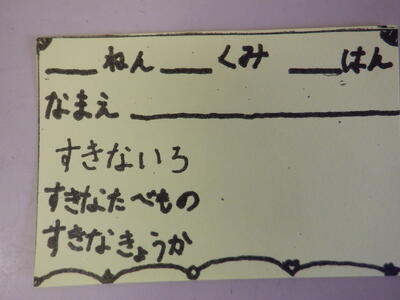 ___ねん___くみ ___はん
なまえ_______________
すきないろ
すきなたべもの
すきなきょうか